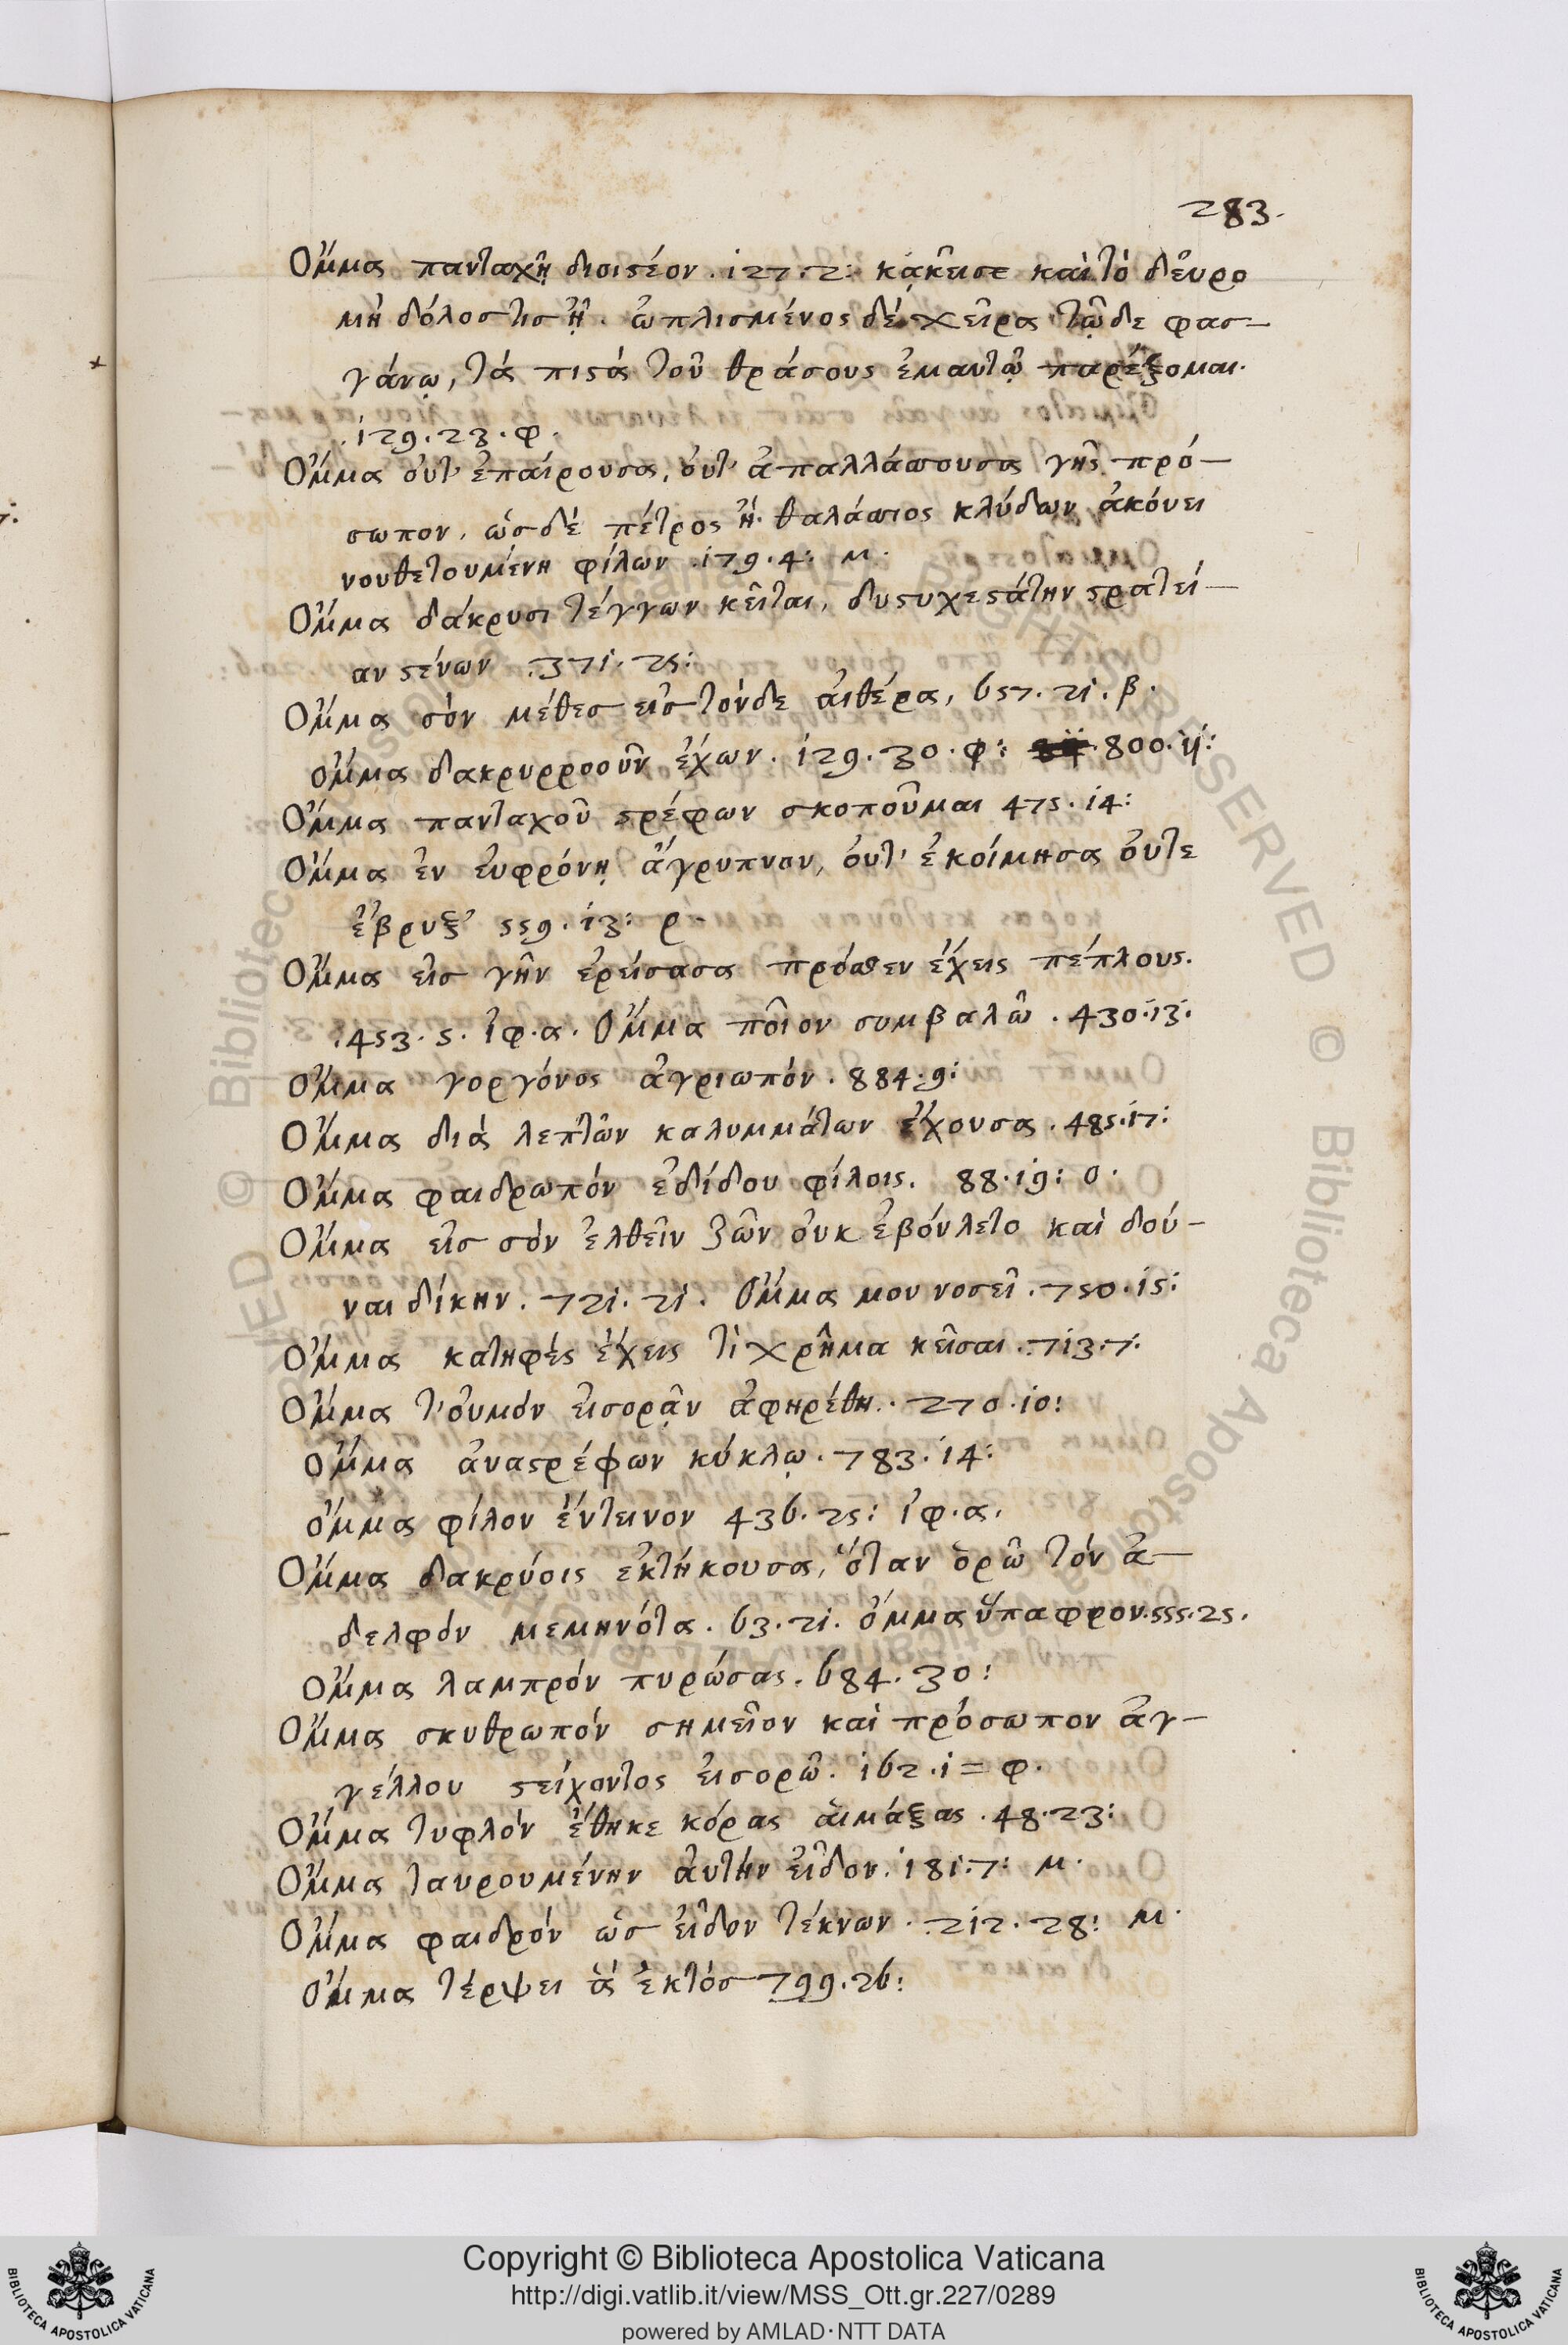 283.
Ὄμμα πανταχῆ διοιστέον . 127.2: κᾀκεῖσε καὶ τὸ δεῦρο
μὴ δόλος τις ᾖ . ὡπλισμένος δὲ χεῖρα τῷδε φασ-
γάνῳ, τὰ πιστὰ τοῦ θράσους ἐμαυτῷ παρέξομαι.
.129.23.φ.
Ὄμμα οὔτ' ἐπαίρουσα, οὔτ' ἀπαλλάσσουσα γῆς πρό-
σωπον, ὡς δὲ πέτρος ἢ θαλάσσιος κλύδων ἀκούει
νουθετουμένη φίλων .179.4: μ.
Ὄμμα δάκρυσι τέγγων κεῖται, δυστυχεστάτην στρατεί-
αν στένων .371.25:
Ὄμμα σὸν μέθες εἰς τόνδε αἰθέρα, 657.21.β.
Ὄμμα δακρυρροοῦν ἔχων . 129.30.φ: 800.11:
Ὄμμα πανταχοῦ στρέφων σκοποῦμαι 475.14:
Ὄμμα ἐν εὐφρόνῃ ἄγρυπνον, οὔτ' ἐκοίμησα οὔτε
ἔβρυξ' 559.13: ρ.
Ὄμμα εἰς γῆν ἐρείσασα πρόσθεν ἔχεις πέπλους.
.453.5. ἰφ.α. Ὄμμα ποῖον συμβαλῶ . 430.13:
Ὄμμα γοργόνος ἀγριωπόν . 884.9:
Ὄμμα διὰ λεπτῶν καλυμμάτων ἔχουσα . 485.17:
Ὄμμα φαιδρωπόν ἐδίδου φίλοις. 88.19: ο.
Ὄμμα εἰς σὸν ἐλθεῖν ζῶν οὐκ ἐβούλετο καὶ δού-
ναι δίκην . 721.21. Ὄμμα μου νοσεῖ .750.15:
Ὄμμα κατηφὲς ἔχεις τὶ χρῆμα κεῖσαι .713.7.
Ὄμμα τ' οὐμὸν εἰσορᾷν ἀφηρέθη . 270.10:
Ὄμμα ἀναστρέφων κύκλῳ . 783.14:
Ὄμμα φίλον ἔντεινον 436.25: ἰφ.α.
Ὄμμα δακρύοις ἐκτήκουσα, ὅταν ὁρῶ τὸν ἀ-
δελφὸν μεμηνότα . 63.21. ὄμμα ὕπαφρον.555.25.
Ὄμμα λαμπρὸν πυρώσας . 684.30:
Ὄμμα σκυθρωπόν σημεῖον καὶ πρόσωπον ἀγ-
γέλλου στείχοντος εἰσορῶ . 162.1= φ.
Ὄμμα τυφλὸν ἔθηκε κόρας αἱμάξας . 48.23:
Ὄμμα ταυρουμένην αὐτὴν εἶδον . 181.7: μ.
Ὄμμα φαιδρόν ὡς εἶδον τέκνων . 212.28: μ.
Ὄμμα τέρψει ἃ ἐκτός 799.26:
Copyright © Biblioteca Apostolica Vaticana
http://digi.vatlib.it/view/MSS_Ott.gr.227/0289
powered by AMLAD·NTT DATA